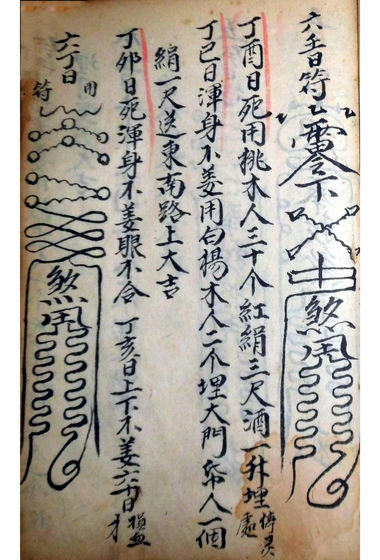 六壬日符
雷令下
煞鬼
丁酉日死用桃木人三十个紅絹三尺酒一升埋停灵處
丁巳日渾身不姜用白楊木人二个埋大門草人一個
絹一尺送東南路上大吉
丁卯日死渾身不姜眼不合 丁亥日上下不姜六十日
六丁日用符
煞鬼